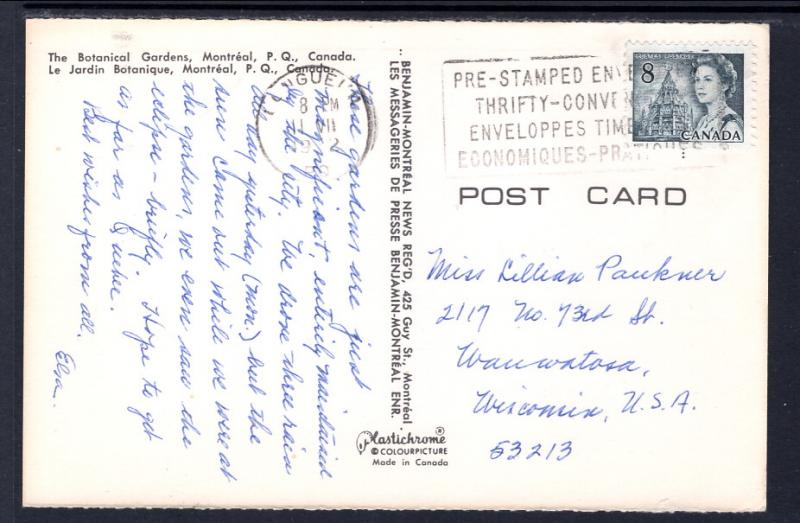 The Botanical Gardens, Montréal, P. Q., Canada.
Le Jardin Botanique, Montréal, P. Q., Canada.
These gardens are just
magnificent, entirely maintained
by the city. We drove thru rain
all day yesterday (Mon.) but the
sun came out while we were at
the gardens, we even saw the
eclipse - briefly. Hope to get
as far as Quebec.
Best wishes from all.
Elva.
BENJAMIN-MONTREAL NEWS REG'D, 425 Guy St., Montréal
LES MESSAGERIES DE PRESSE BENJAMIN-MONTRÉAL ENR.
Plastichrome®
© COLOURPICTURE
Made in Canada
LONGUEUIL
8 PM
PRE-STAMPED ENVE
THRIFTY-CONVE
ENVELOPPES TIM
ECONOMIQUES-PRATIQUES
8
CANADA
POST CARD
Miss Lillian Paukner
2117 No. 73rd St.
Wauwatosa,
Wisconsin, U.S.A.
53213